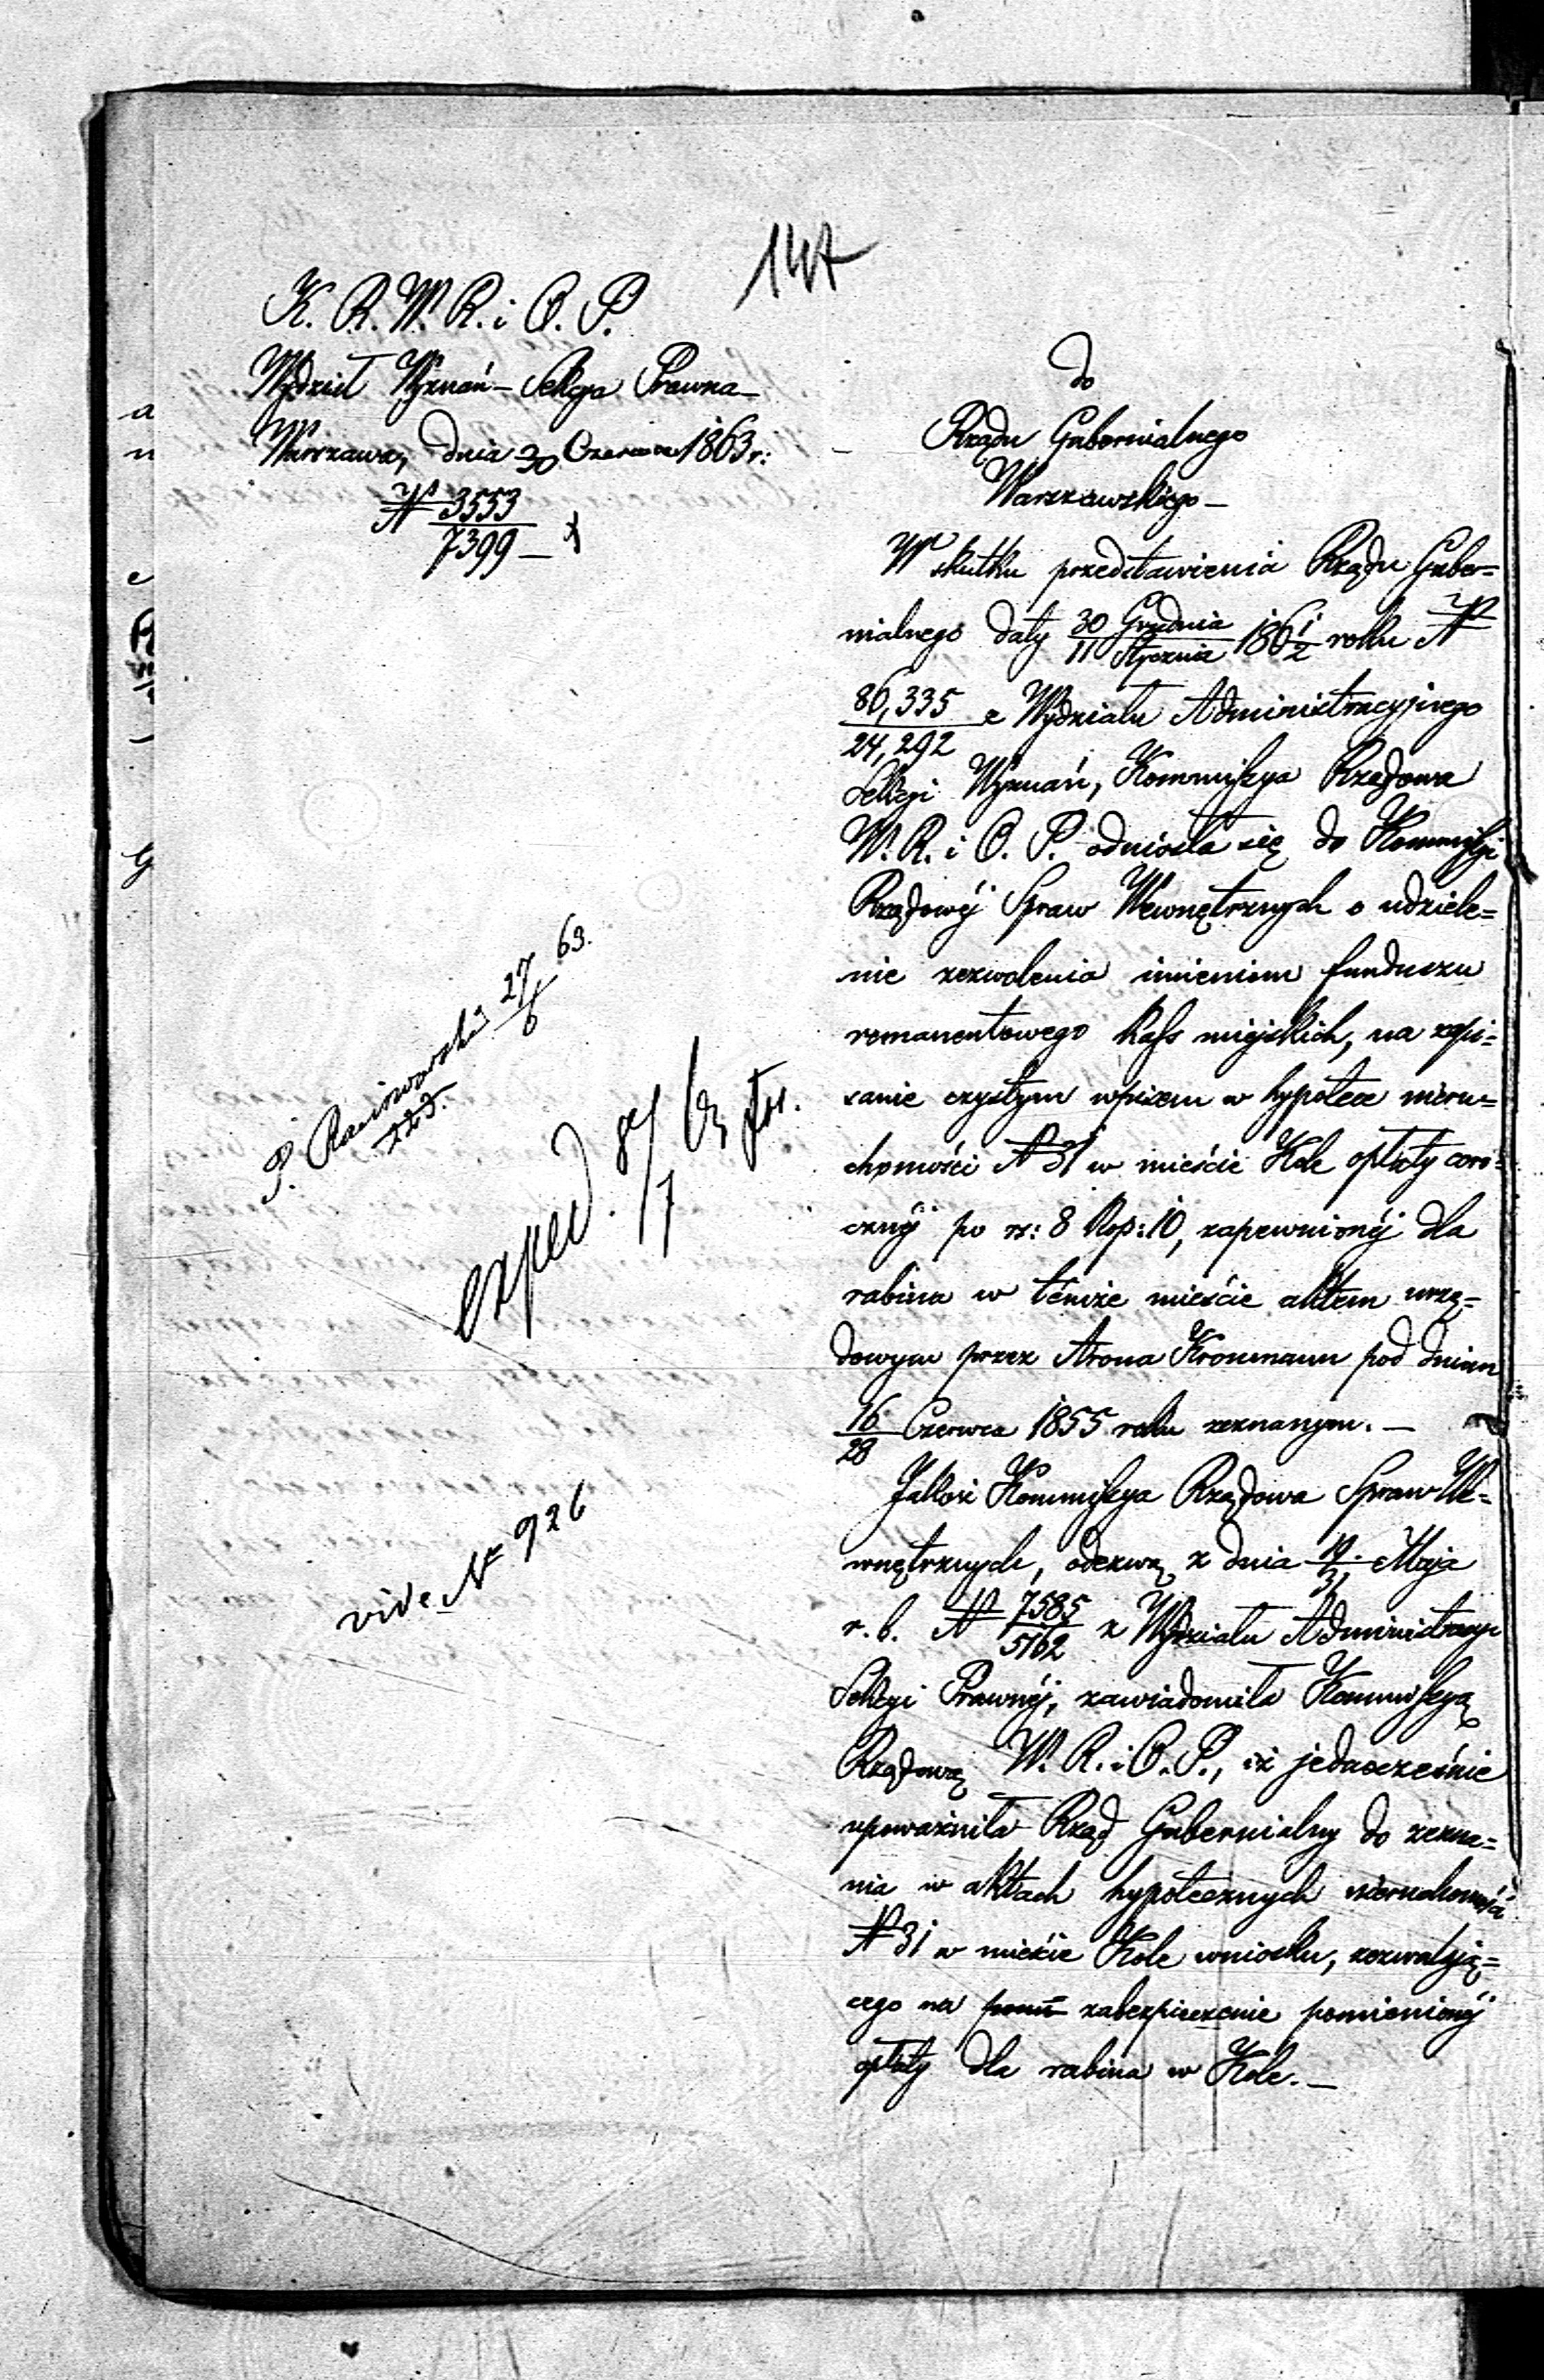 147
K. R. W. R. i O. P.
Wydział Wyznań – Sekcya Prawna –
Warszawa, dnia 30 Czerwca 1863 r:
N 3553/7399 –
do
Rządu Gubernialnego
Warszawskiego –
W skutku przedstawienia Rządu Guber=
nialnego daty 30 Grudnia/11 Stycznia 186 1/2 roku N
86,335/24,292 z Wydziału Administracyjnego
Sekcyi Wyznań, Kommissya Rządowa
W. R. i O. P. odniosła się do Kommissyi
Rządowéj Spraw Wewnętrznych o udziele=
nie zezwolenia imieniem funduszu
remanentowego kass miejskich, na zapi=
sanie czystym wpisem w hypotece nieru=
chomości N 31 w mieście Kole opłaty coro=
cznéj po rs: 8 kop: 10, zapewnionéj dla
rabina w témże mieście aktem urzę=
dowym przez Arona Kronmann pod dniem
16/28 Czerwca 1855 roku zeznanym. –
Jakoż Kommissya Rządowa Spraw We=
wnętrznych, odezwą z dnia 19/31 Maja
r. b. N 7585/5162 z Wydziału Administracyi
Sekcyi Prawnéj, zawiadomiła Kommissyą
Rządową W. R. i O. P., iż jednocześnie
upoważniła Rząd Gubernialny do zezna=
nia w aktach hypotecznych nieruchomości
N 31 w mieście Kole wniosku, zezwalają=
cego na zabezpieczenie pomienionéj
opłaty dla rabina w Kole. –
P. 27/6 63.
exped. 8/7 63
vide N 926